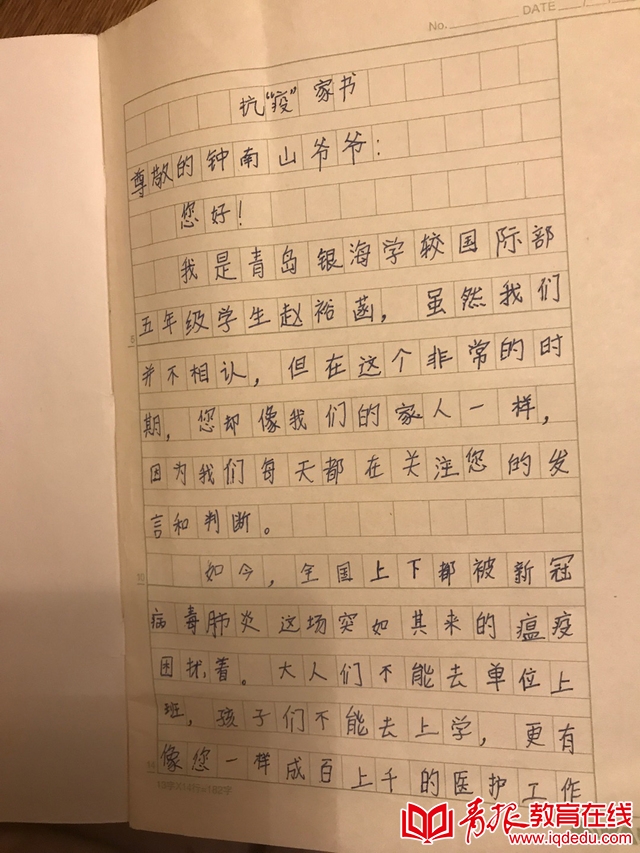 No. DATE / /
抗“疫”家书
尊敬的钟南山爷爷:
您好!
我是青岛银海学较国际部
五年级学生赵裕菡,虽然我们
并不相认,但在这个非常的时
期,您却像我们的家人一样,
因为我们每天都在关注您的发
言和判断。
如今,全国上下都被新冠
病毒肺炎这场突如其来的瘟疫
困扰着。大人们不能去单位上
班,孩子们不能去上学,更有
像您一样成百上千的医护工作
5
10
青报教育在线
www.iqdedu.com